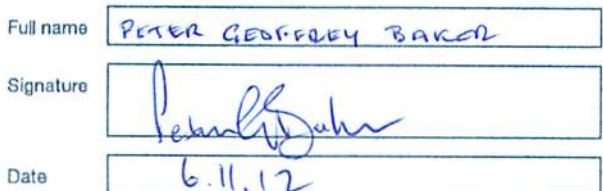 Full name PETER GEOFFREY BAKER
Signature
Date 6.11.12